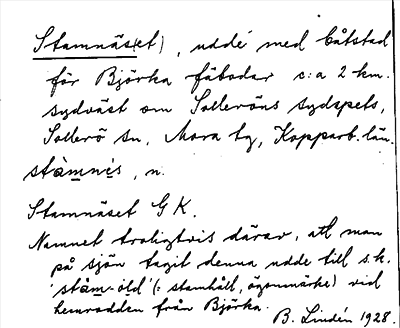 Stamnäs(et), udde med båtstad
för Björka fäbodar c:a 2 km.
sydväst om Solleröns sydspets,
Sollerö sn, Mora tg, Kopparb. län.
stàmnìs, n.
Stamnäset G K.
Namnet troligtvis därav, att man
på sjön tagit denna udde till s.k.
'stäm-öld' (: stamhåll, ögonmärke) vid
hemrodden från Björka.
B. Lindén 1928.